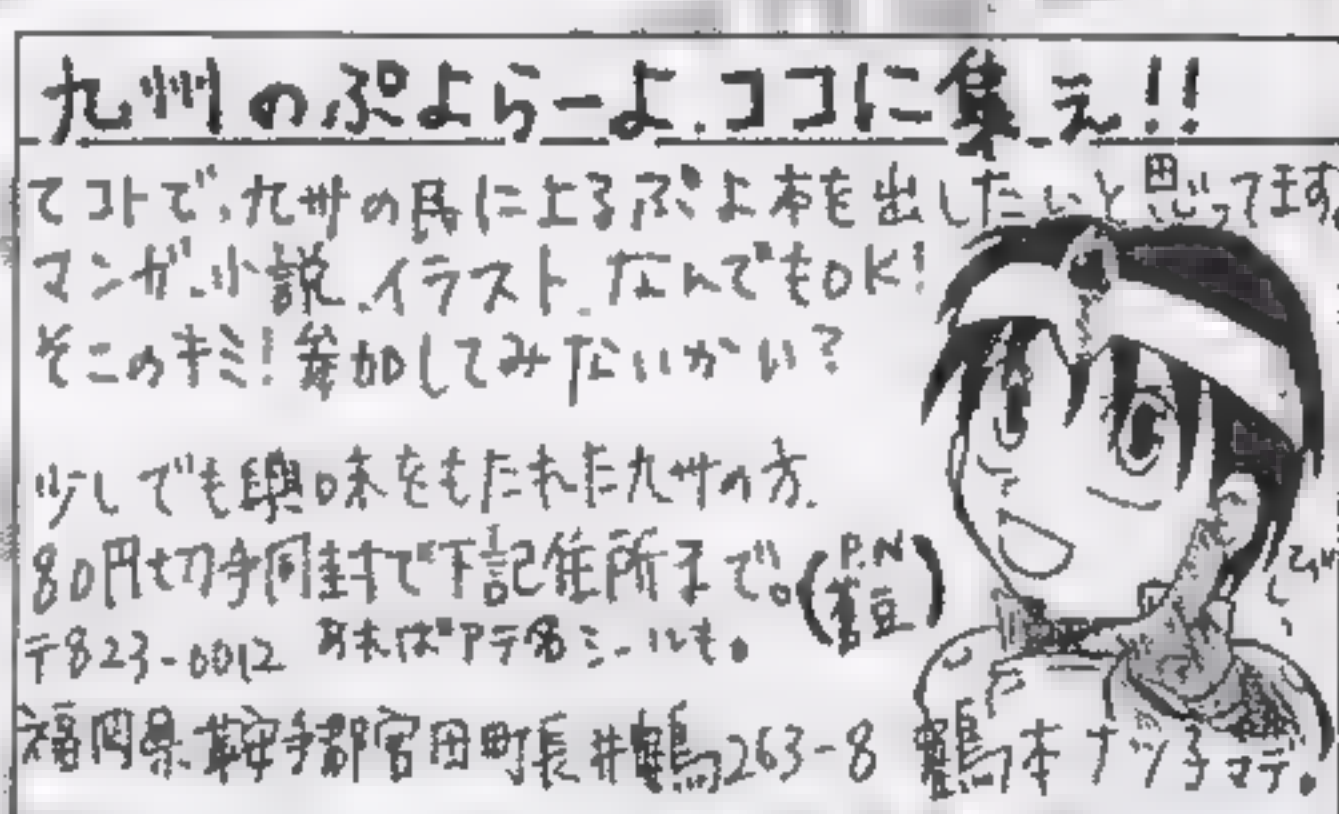 九州のぷよらーよ、ココに集え!!
てコトで、九州の民によるぷよ本を出したいと思ってます。
マンガ、小説、イラスト、なんでもOK!
そこのキミ!参加してみないかい?
少しでも興味をもたれた九州の方、
80円切手同封で下記住所まで。(P.N 豆)
〒823-0012 あればアテ名シールも。
福岡県鞍手郡宮田町長井鶴263-8 鶴本ナツ子マデ。